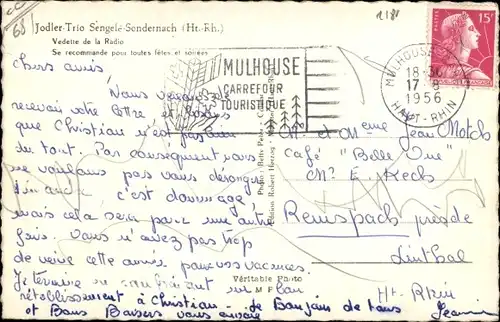 68)
Jodler-Trio Sengelé-Sondernach (Ht.-Rh.)
Vedette de la Radio
Se recommande pour toutes fêtes et soirées
MULHOUSE
CARREFOUR
TOURISTIQUE
MULHOUSE
18
17 - 8
1956
HAUT-RHIN
15F
Chers amis
Nous venons de
recevoir votre lettre, et
que Christian n'est pas bien
du tout. Par conséquent nous
ne voulons pas vous déranger
dimanche c'est dommage,
mais cela sera pour une autre
fois. Vous n'avez pas trop
de veine cette année pour vos vacances.
Je termine en souhaitant un bon
rétablissement à Christian - de Bonjour de tous
et Bons Baisers vous envoie Jeannine
Mr et Mme Jean
Café "Belle Vue"
Mr E. Kech
Remspach près de
Linthal
Ht- Rhin
Edition Robert Herzog
Véritable Photo